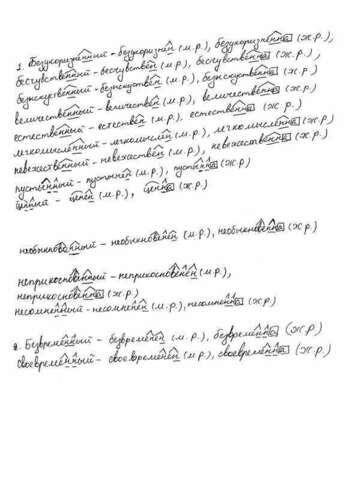 1. Безукоризненный - безукоризнен (м.р.), безукоризненна (ж.р.),
бесчувственный - бесчувствен (м.р.), бесчувственна (ж.р.),
безыскусственный - безыскусствен (м.р.), безыскусственна (ж.р.)
величественный - величествен (м.р.), величественна (ж.р.)
естественный - естествен (м.р.), естественна (ж.р.)
легкомысленный - легкомыслен (м.р.), легкомысленна (ж.р.)
невежественный - невежествен (м.р.), невежественна (ж.р.)
пустынный - пустынен (м.р.), пустынна (ж.р.)
ценный - ценен (м.р.), ценна (ж.р.)
необыкновенный - необыкновенен (м.р.), необыкновенна (ж.р.)
неприкосновенный - неприкосновенен (м.р.),
неприкосновенна (ж.р.)
несомненный - несомненен (м.р.), несомненна (ж.р.)
2. Безвременный - безвременен (м.р.), безвременна (ж.р.)
своевременный - своевременен (м.р.), своевременна (ж.р.)